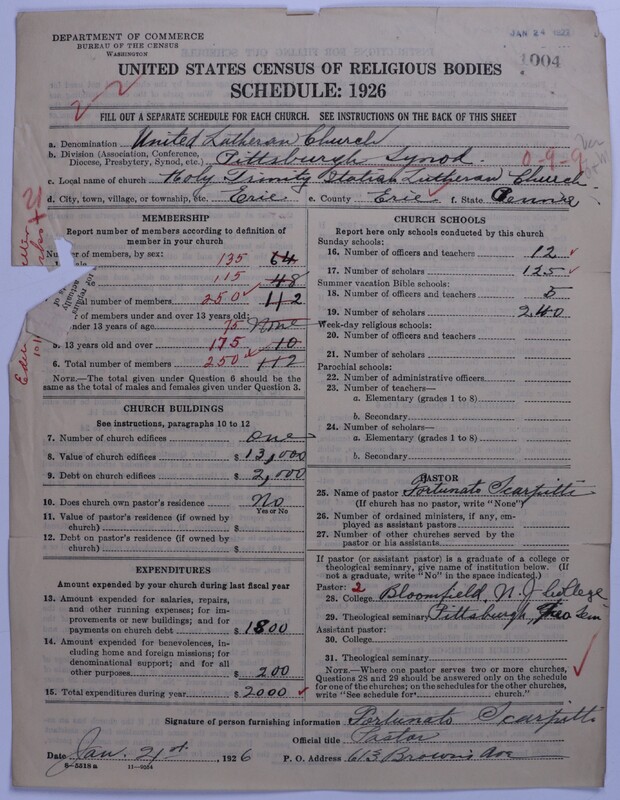 DEPARTMENT OF COMMERCE
BUREAU OF THE CENSUS
WASHINGTON
JAN 24
1004
UNITED STATES CENSUS OF RELIGIOUS BODIES
SCHEDULE: 1926
2-2
FILL OUT A SEPARATE SCHEDULE FOR EACH CHURCH. SEE INSTRUCTIONS ON THE BACK OF THIS SHEET
a. Denomination United Lutheran Church
b. Division (Association, Conference, Diocese, Presbytery, Synod, etc.) Pittsburgh Synod. 0-9-9
c. Local name of church Holy Trinity Italian Lutheran Church
d. City, town, village, or township, etc. Erie e. County Erie f. State Penna
MEMBERSHIP
Report number of members according to definition of
member in your church
Number of members, by sex:
135 64
115 48
number of members 250 112
of members under and over 13 years old:
under 13 years of age 75 None
5. 13 years old and over 175 10
6. Total number of members 250 112
NOTE.—The total given under Question 6 should be the
same as the total of males and females given under Question 3.
CHURCH BUILDINGS
See instructions, paragraphs 10 to 12
7. Number of church edifices one
8. Value of church edifices $ 13,000
9. Debt on church edifices $ 2,000
10. Does church own pastor's residence No
Yes or No
11. Value of pastor's residence (if owned by
church) $
12. Debt on pastor's residence (if owned by
church) $
EXPENDITURES
Amount expended by your church during last fiscal year
13. Amount expended for salaries, repairs,
and other running expenses; for im-
provements or new buildings; and for
payments on church debt $ 1800
14. Amount expended for benevolences, in-
cluding home and foreign missions; for
denominational support; and for all
other purposes $ 200
15. Total expenditures during year $ 2000
CHURCH SCHOOLS
Report here only schools conducted by this church
Sunday schools:
16. Number of officers and teachers 12
17. Number of scholars 125
Summer vacation Bible schools:
18. Number of officers and teachers 5
19. Number of scholars 240
Week-day religious schools:
20. Number of officers and teachers
21. Number of scholars
Parochial schools:
22. Number of administrative officers
23. Number of teachers—
a. Elementary (grades 1 to 8)
b. Secondary
24. Number of scholars—
a. Elementary (grades 1 to 8)
b. Secondary
PASTOR
25. Name of pastor Fortunato Scarpitti
(If church has no pastor, write "None")
26. Number of ordained ministers, if any, em-
ployed as assistant pastors
27. Number of other churches served by the
pastor or his assistants
If pastor (or assistant pastor) is a graduate of a college or
theological seminary, give name of institution below. (If
not a graduate, write "No" in the space indicated.)
Pastor: 2
28. College Bloomfield, N. J. College
29. Theological seminary Pittsburgh, Theo Sem
Assistant pastor:
30. College
31. Theological seminary
NOTE.—Where one pastor serves two or more churches,
Questions 28 and 29 should be answered only on the schedule
for one of the churches; on the schedules for the other churches,
write "See schedule for church."
Signature of person furnishing information Fortunato Scarpitti
Official title Pastor
Date Jan. 21st, 1926 P. O. Address 613 Browns Ave
8-5318a 11-9054